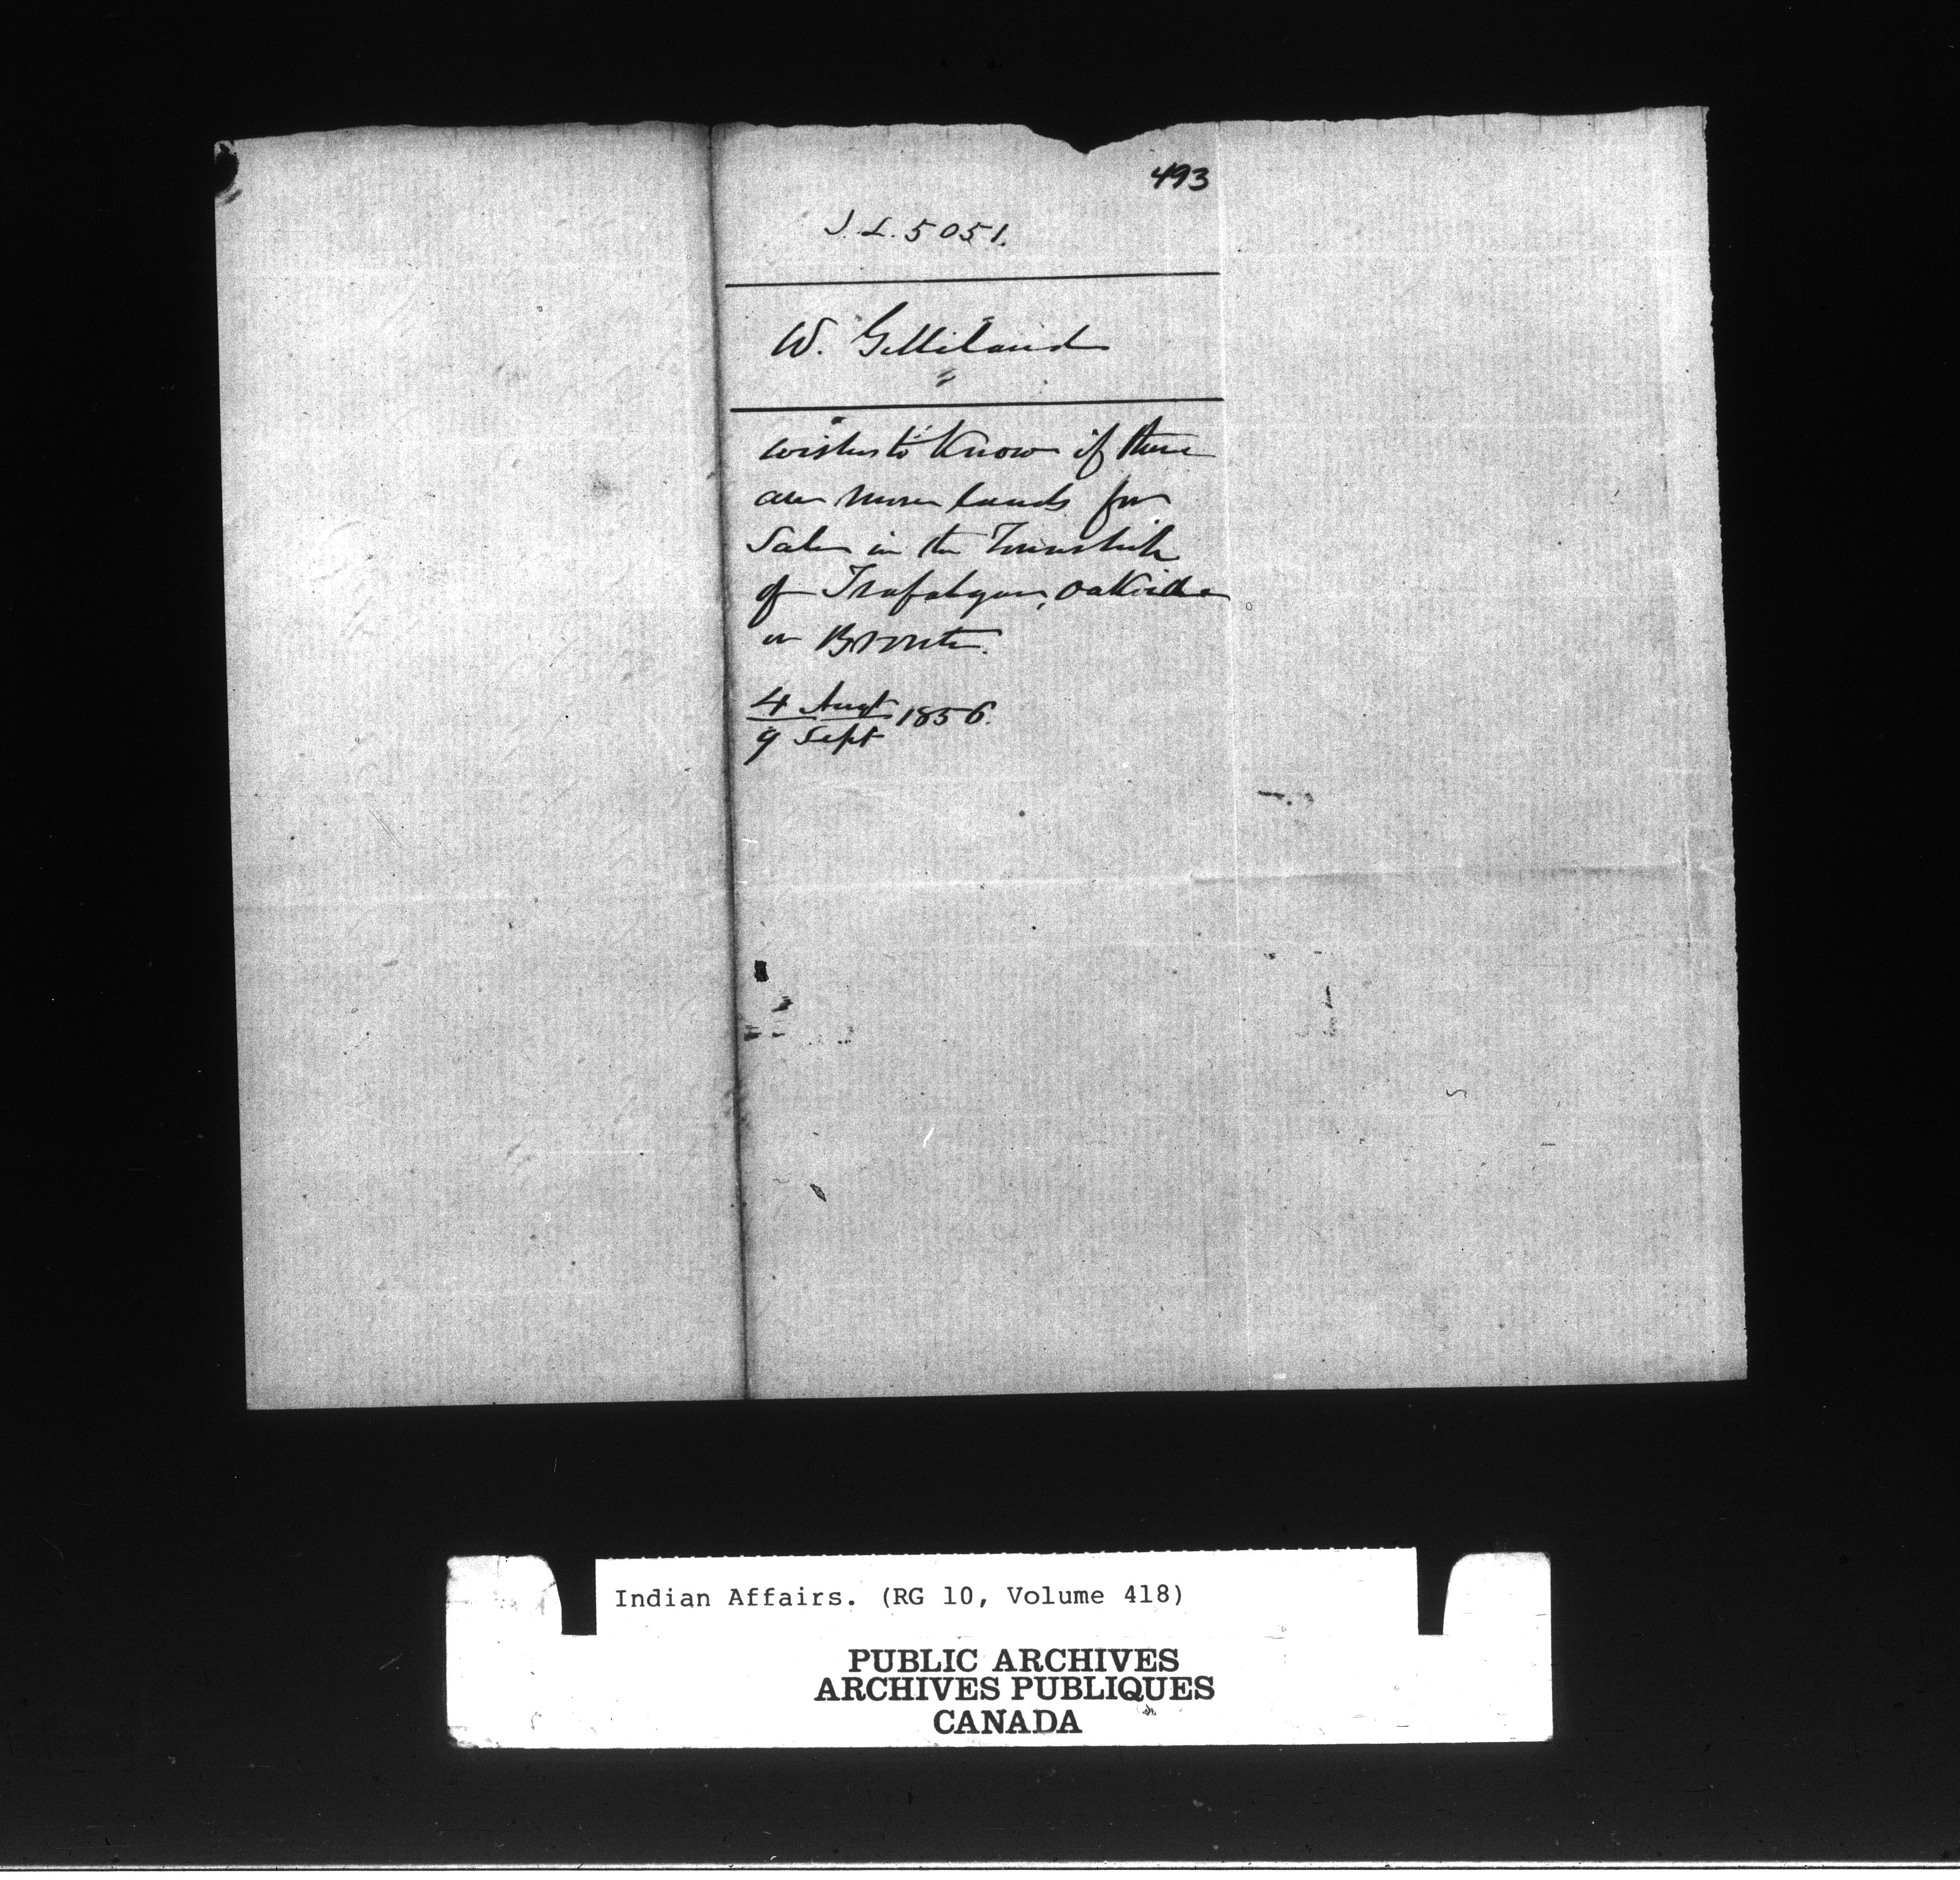 493
J. L. 5051.
W. Gilliland
wishes to know if there
are more lands for
Sale in the Township
of Trafalgar, Oakville
or Bronte.
4 Augt
9 Sept 1856.
Indian Affairs. (RG 10, Volume 418)
PUBLIC ARCHIVES
ARCHIVES PUBLIQUES
CANADA